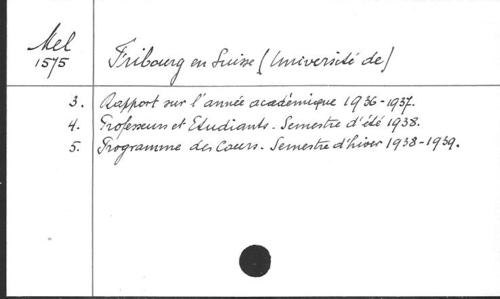 Mel
1575
Fribourg en Suisse (Université de)
3. Rapport sur l'année académique 1936-1937.
4. Professeurs et Etudiants. Semestre d'été 1938.
5. Programme des Cours. Semestre d'hiver 1938-1939.